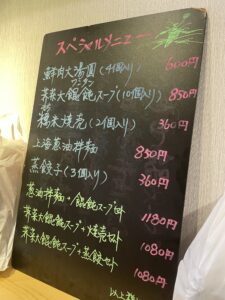 スペシャルメニュー
鮮肉大湯圓(4個入り) 600円
ワンタン
薺菜大餛飩スープ(10個入り) 850円
糯米焼売(2個入り) 360円
上海葱油拌麺 850円
蒸餃子(3個入り) 360円
葱油拌麺+餛飩スープ 1180円
薺菜大餛飩スープ+焼売セット 1080円
薺菜大餛飩スープ+蒸餃セット 1080円